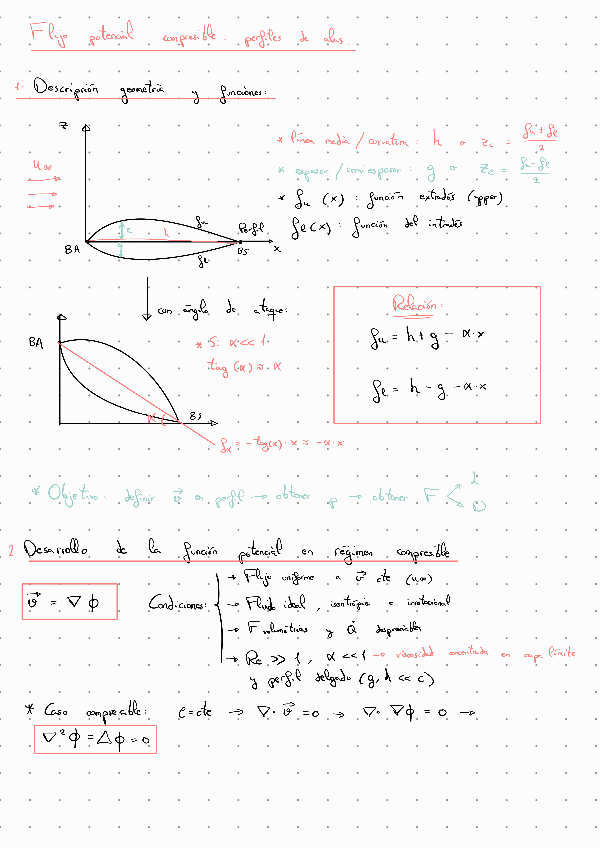 Flujo potencial compresible: perfiles de alas.
1- Descripción geometría y funciones:
z
u∞
* línea media / curvatura: h o z_c = (f_u + f_e)/2
* espesor / semiespesor: g o z_e = (f_u - f_e)/2
* f_u (x): función extradós (upper)
f_e (x): función del intradós
f_u
Perfil
e
h
g
BA
BS
x
f_e
con ángulo de ataque:
BA
* Si α << 1
tag (α) ≈ α
α
BS
f_α = -tag(α)·x ≈ -α·x
Relación:
f_u = h + g - α·x
f_e = h - g - α·x
* Objetivo: definir v⃗ en perfil → obtener p → obtener F⃗ < L
D
2 Desarrollo de la función potencial en régimen compresible
v⃗ = ∇ϕ
Condiciones:
→ Flujo uniforme a v⃗ cte (u∞)
→ Fluido ideal, isentrópico e irrotacional
→ F volumétricas y Q̇ despreciables
→ Re >> 1, α << 1 → viscosidad concentrada en capa límite
y perfil delgado (g, h << c)
* Caso compresible: ρ = cte → ∇·v⃗ = 0 → ∇·∇ϕ = 0 →
∇²ϕ = Δϕ = 0